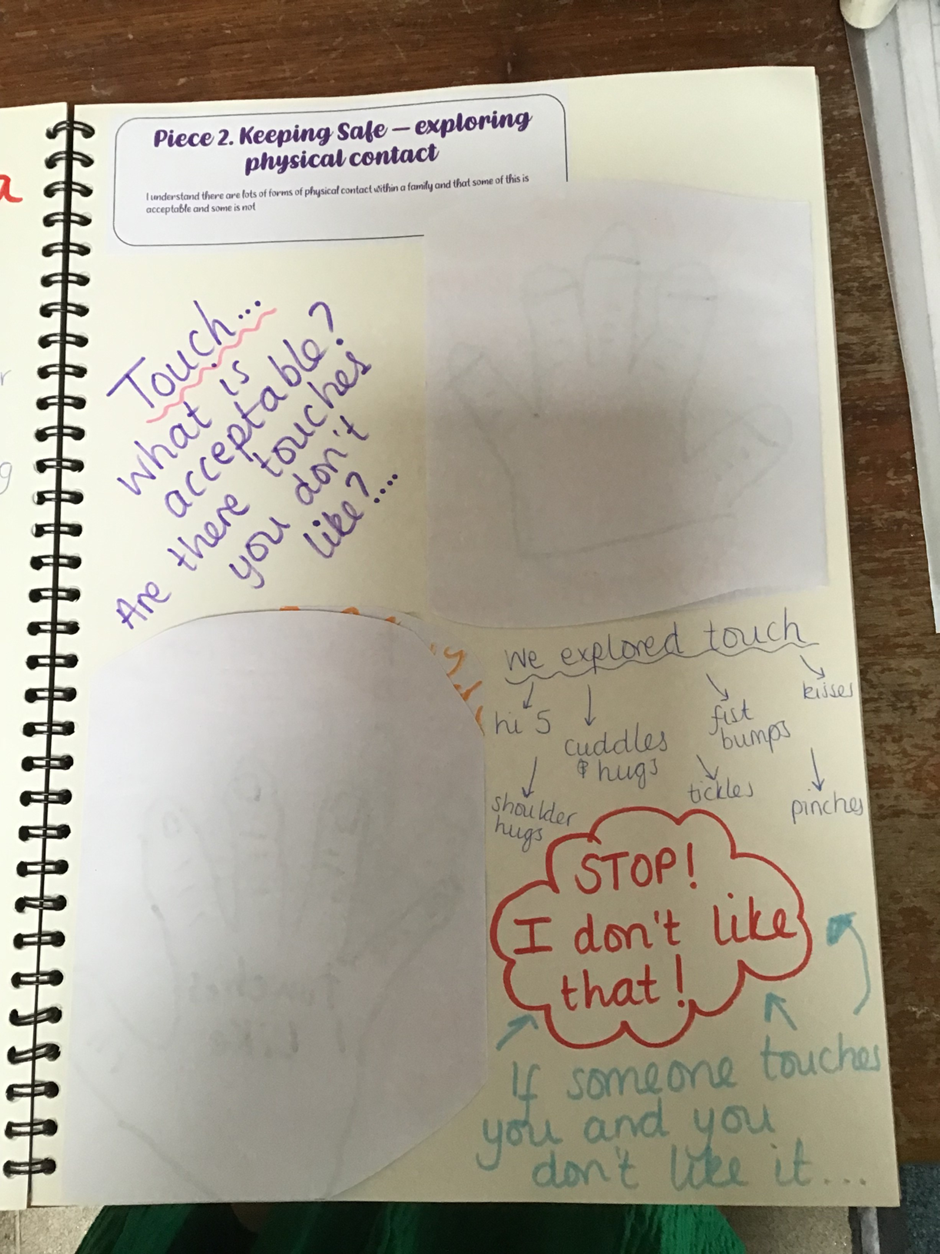 Piece 2. Keeping Safe – exploring
physical contact
I understand there are lots of forms of physical contact within a family and that some of this is
acceptable and some is not
Touch...
What is
acceptable?
Are there touches
you don't
like?....
We explored touch
hi 5
cuddles
& hugs
fist
bumps
kisses
shoulder
hugs
tickles
pinches
STOP!
I don't like
that!
If someone touches
you and you
don't like it...
Touches
I Like